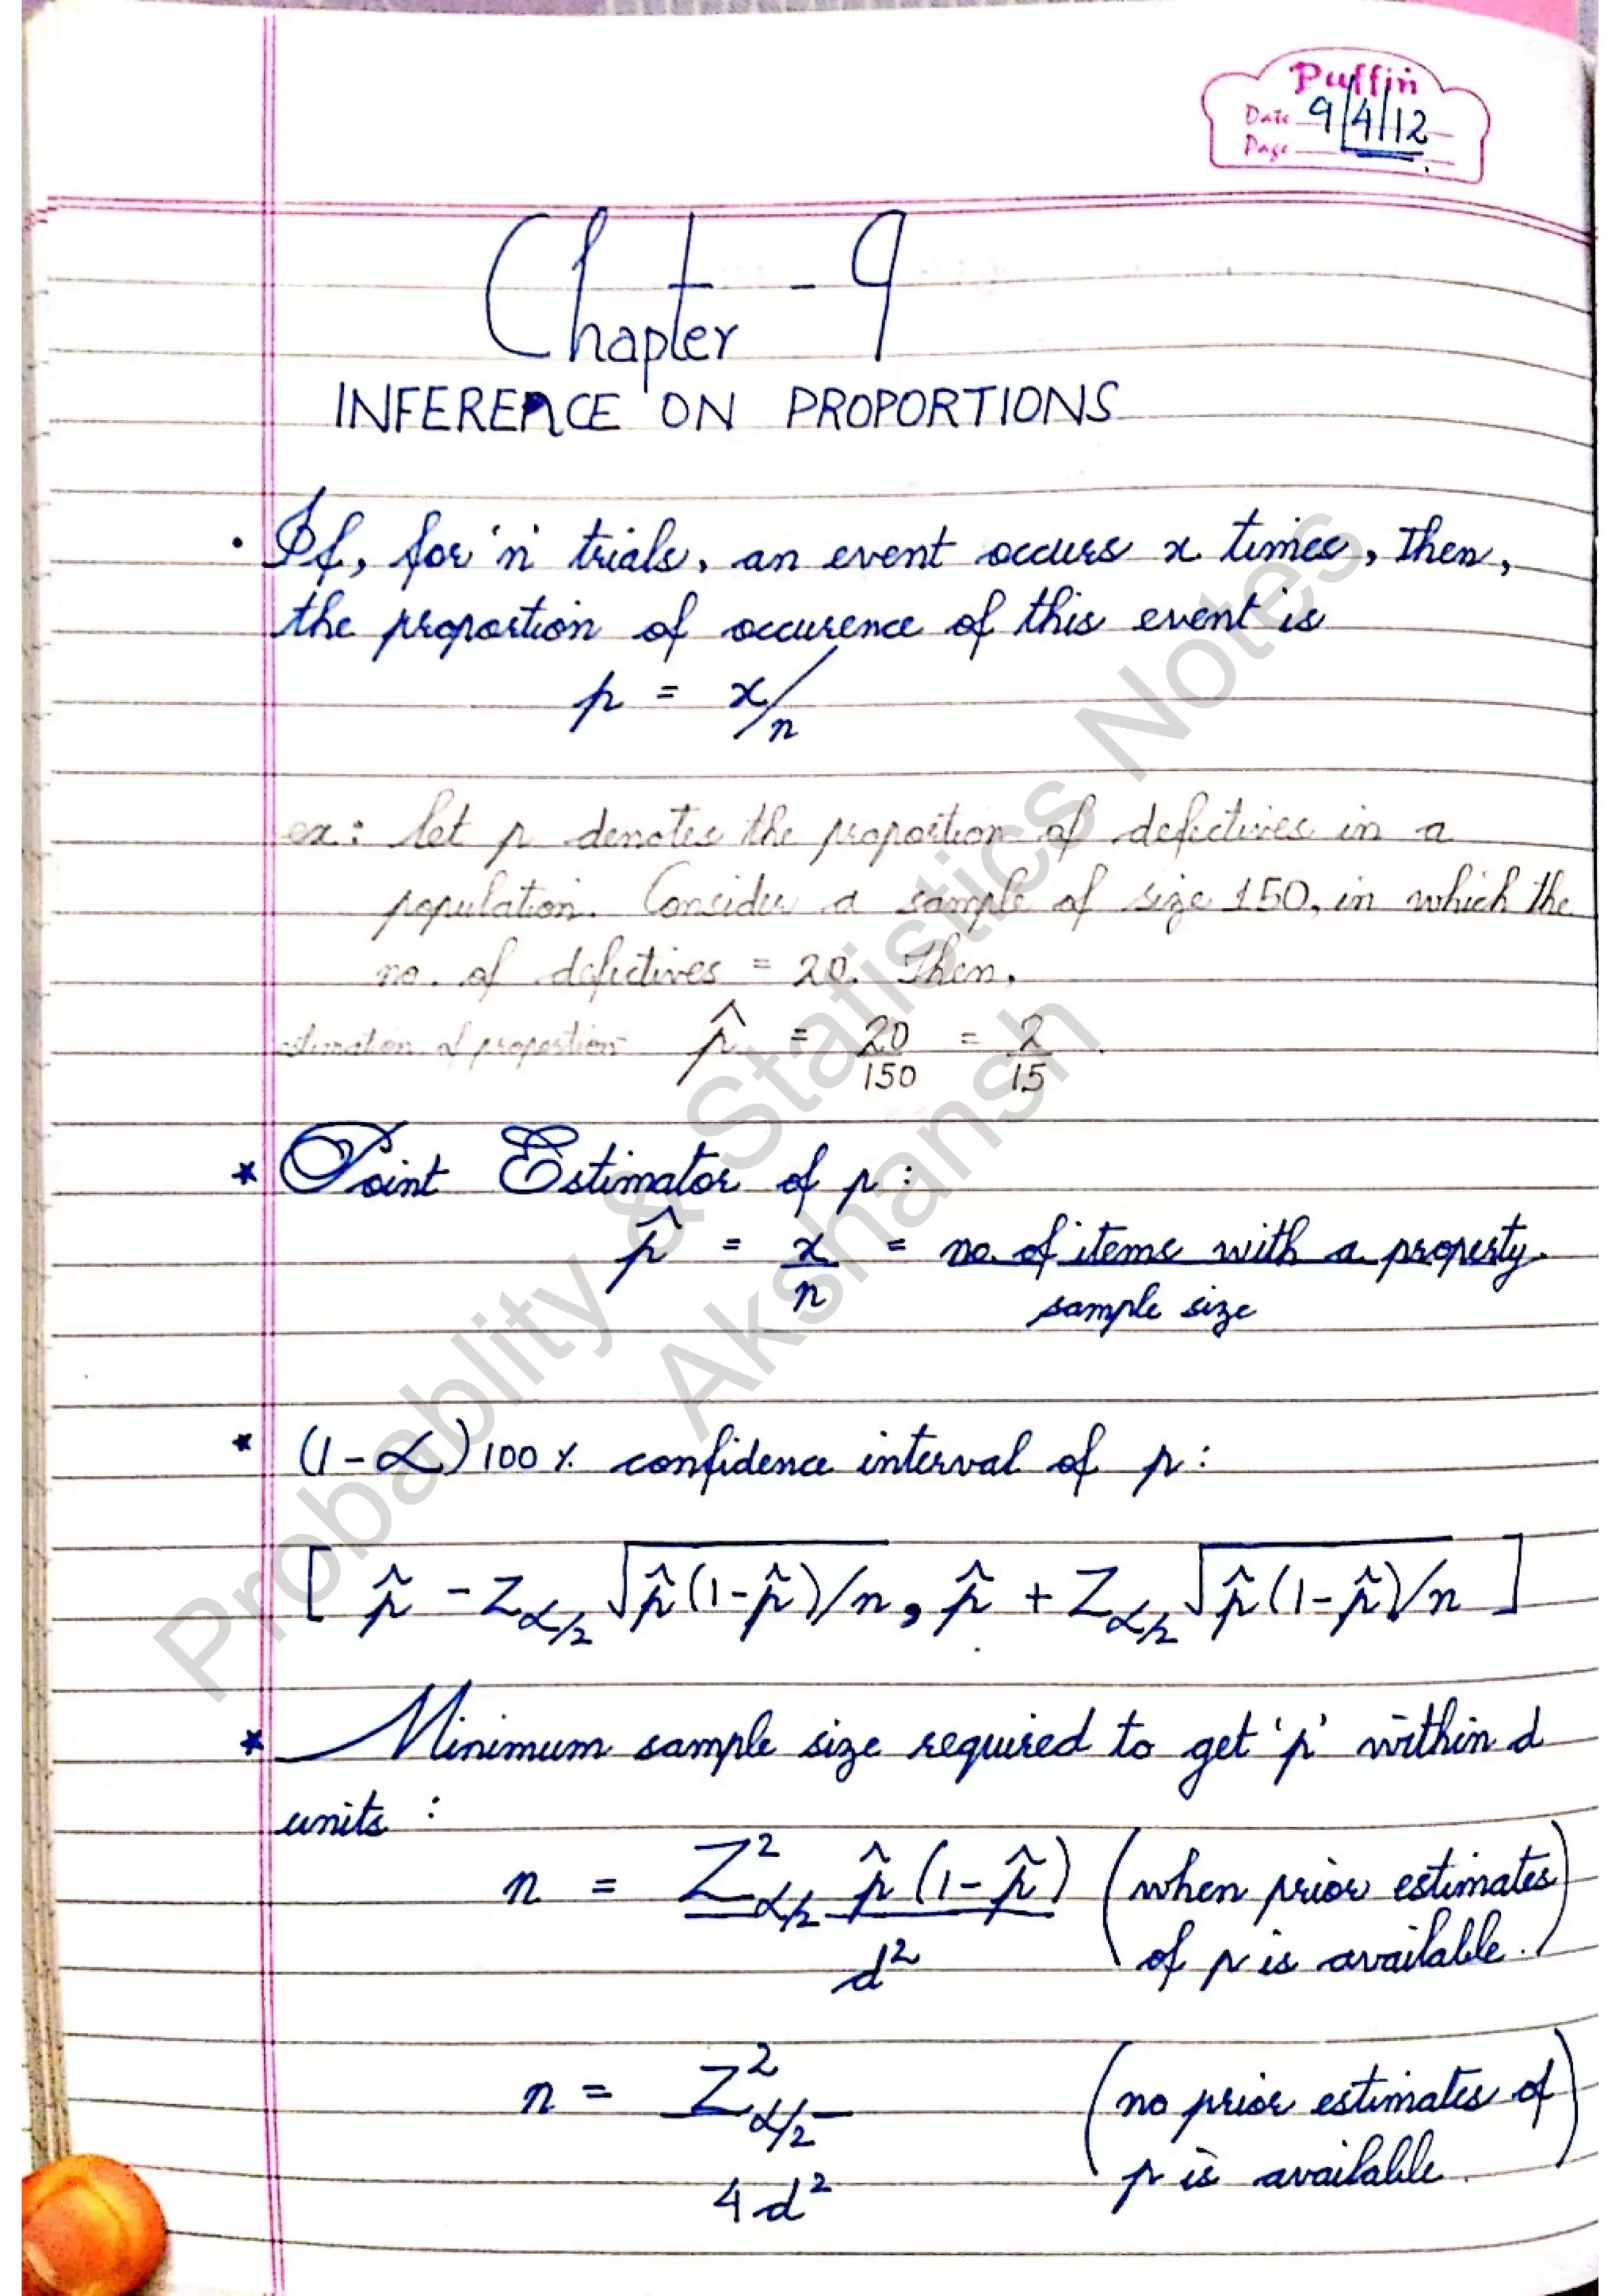 Puffin
Date 9/4/12
Page
Chapter - 9
INFERENCE ON PROPORTIONS
• If, for 'n' trials, an event occurs x times, then,
the proportion of occurence of this event is
p = x/n
ex: Let p denotes the proportion of defectives in a
population. Consider a sample of size 150, in which the
no. of defectives = 20. Then,
estimation of proportion p̂ = 20/150 = 2/15.
* Point Estimator of p:
p̂ = x/n = no. of items with a property./sample size
* (1-α)100% confidence interval of p:
[ p̂ - Zα/2 √p̂(1-p̂)/n, p̂ + Zα/2 √p̂(1-p̂)/n ]
* Minimum sample size required to get 'p' within d
units:
n = Z²α/2 p̂(1-p̂)/d² (when prior estimates
of p is available.)
n = Z²α/2/4d² (no prior estimates of
p is available.)
Probablity & Statistics Notes
Akshansh